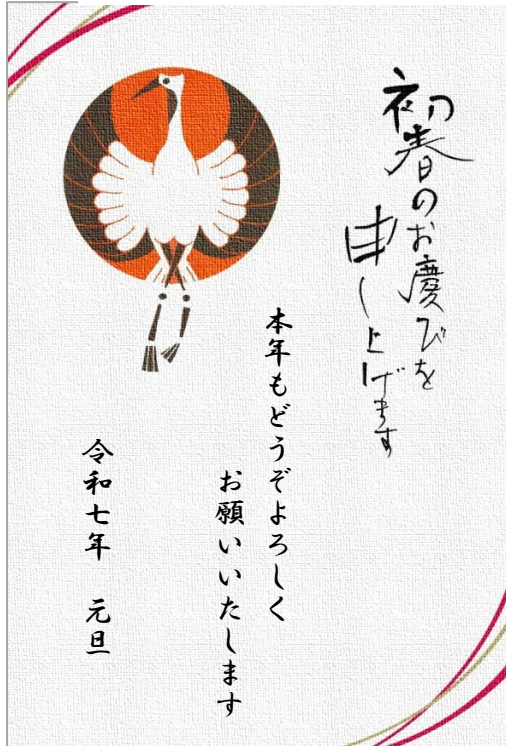 初春のお慶びを
申し上げます
本年もどうぞよろしく
お願いいたします
令和七年　元旦